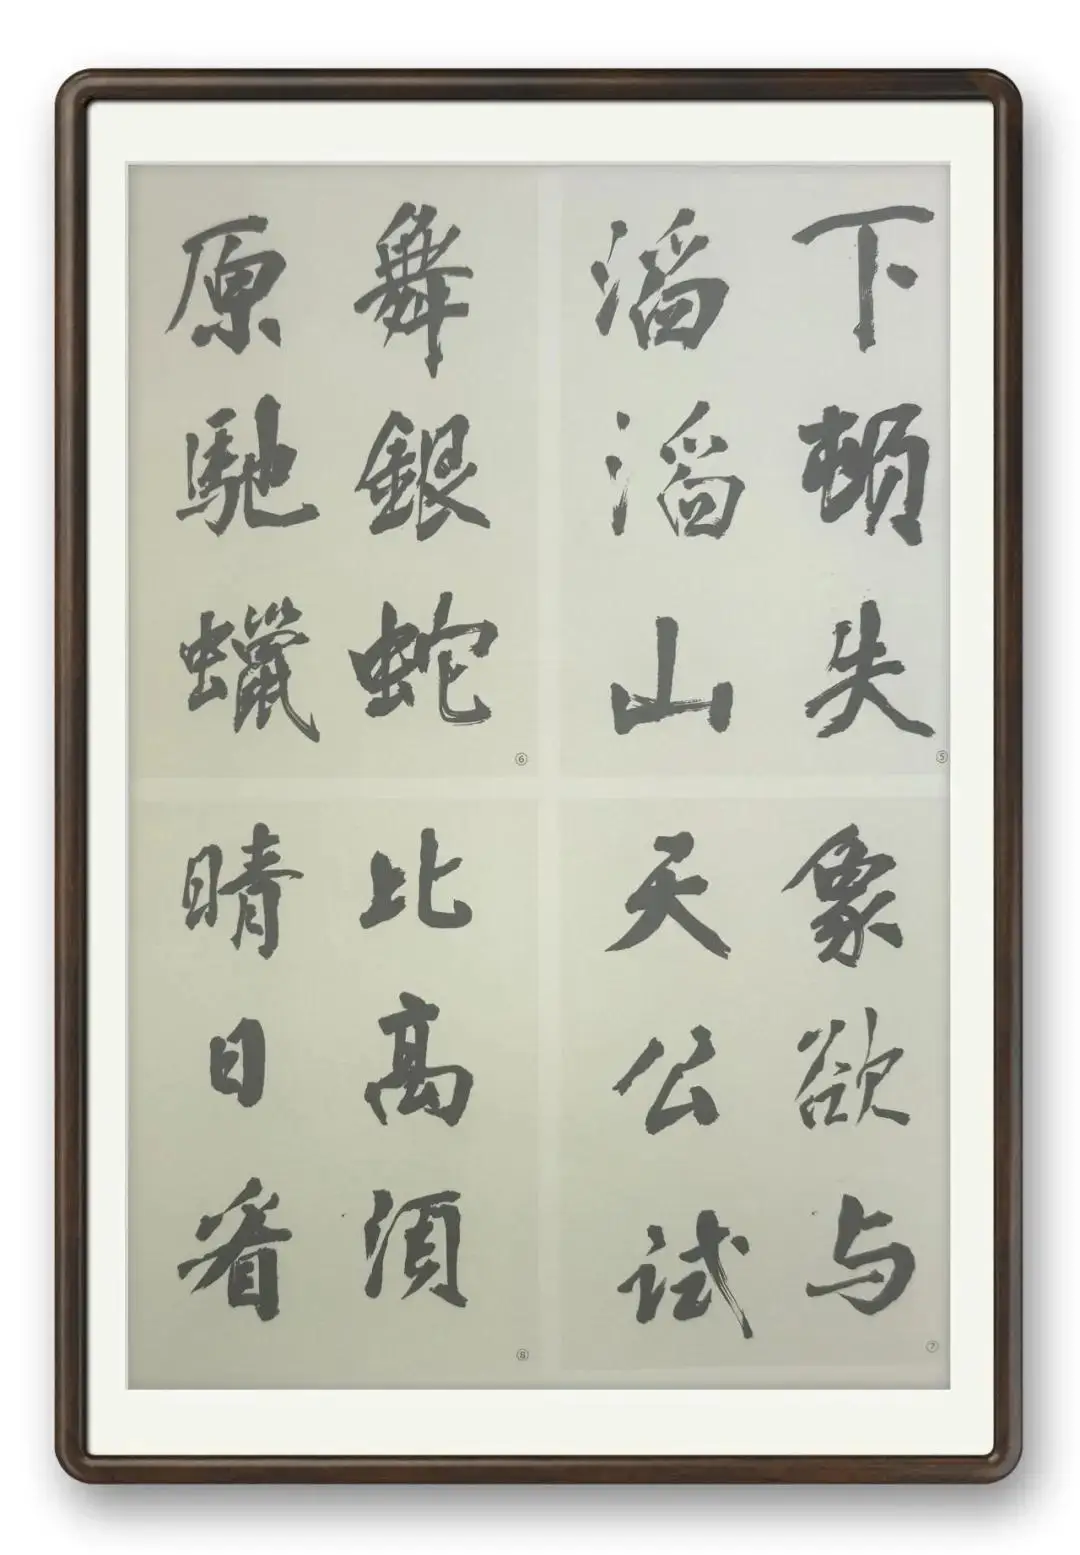 下頓失
滔滔山
⑤
舞銀蛇
原馳蠟
⑥
象欲与
天公試
⑦
比高須
晴日看
⑧